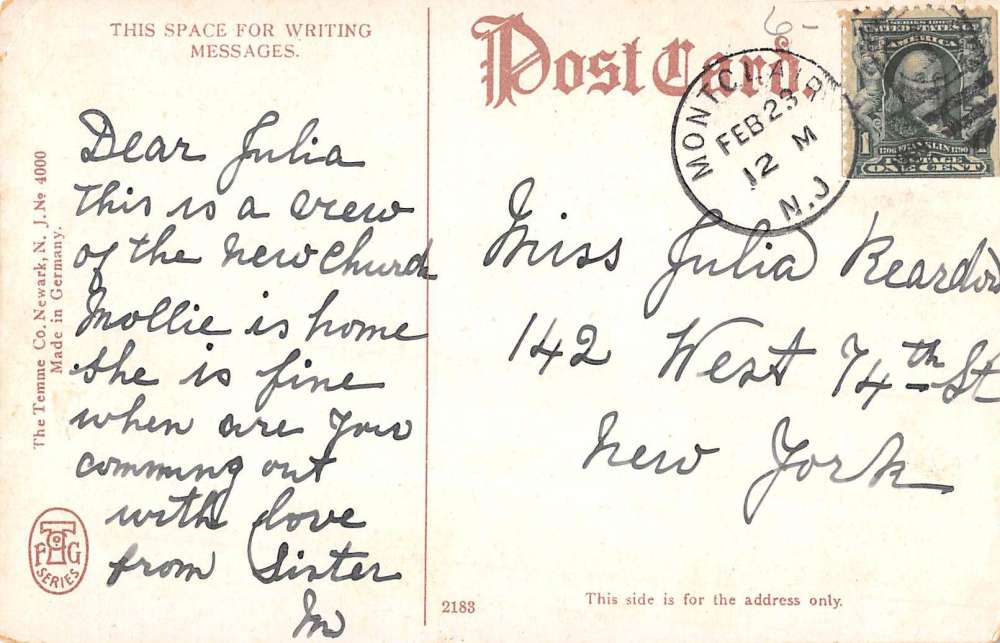 THIS SPACE FOR WRITING
MESSAGES.
Dear Julia
this is a view
of the new church
Mollie is home
she is fine
when are you
comming out
with love
from Sister
M
The Temme Co. Newark, N. J. No 4000
Made in Germany.
P T G
SERIES
Post Card.
MONTCLAIR
FEB 23
12 M
N.J
SERIES 1902
UNITED STATES OF
AMERICA
1706 FRANKLIN 1790
POSTAGE
1 ONE CENT 1
Miss Julia Reardon
142 West 74th St
New York
2183
This side is for the address only.